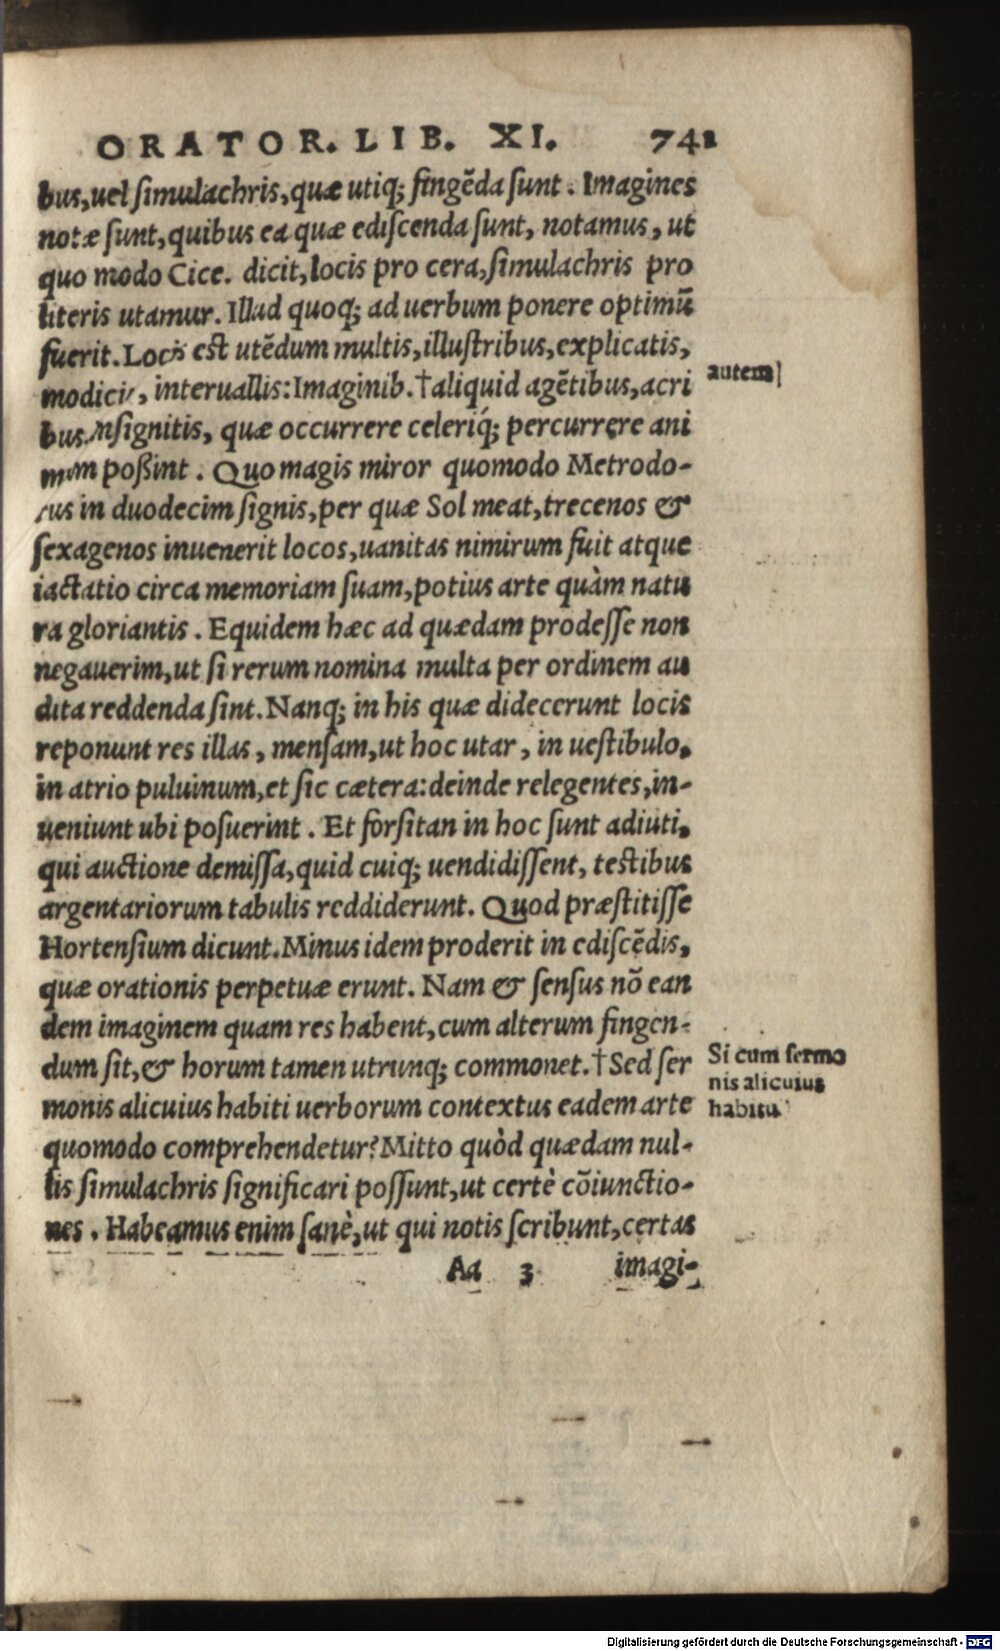 ORATOR. LIB. XI. 741
bus, uel simulachris, quæ utiq; fingẽda sunt. Imagines
notæ sunt, quibus ea quæ ediscenda sunt, notamus, ut
quo modo Cice. dicit, locis pro cera, simulachris pro
literis utamur. Illud quoq; ad uerbum ponere optimũ
fuerit. Locis est utẽdum multis, illustribus, explicatis,
modicis, interuallis: Imaginib. †aliquid agẽtibus, acri
autem
bus, insignitis, quæ occurrere celeriq́; percurrere ani
mum poßint. Quo magis miror quomodo Metrodo-
rus in duodecim signis, per quæ Sol meat, trecenos &
sexagenos inuenerit locos, uanitas nimirum fuit atque
iactatio circa memoriam suam, potius arte quàm natu
ra gloriantis. Equidem hæc ad quædam prodesse non
negauerim, ut si rerum nomina multa per ordinem au
dita reddenda sint. Nanq; in his quæ didecerunt locis
reponunt res illas, mensam, ut hoc utar, in uestibulo,
in atrio puluinum, et sic cætera: deinde relegentes, in-
ueniunt ubi posuerint. Et forsitan in hoc sunt adiuti,
qui auctione demissa, quid cuiq; uendidissent, testibus
argentariorum tabulis reddiderunt. Quod præstitisse
Hortensium dicunt. Minus idem proderit in ediscẽdis,
quæ orationis perpetuæ erunt. Nam & sensus nõ ean
dem imaginem quam res habent, cum alterum fingen-
dum sit, & horum tamen utrunq; commonet. †Sed ser
monis alicuius habiti uerborum contextus eadem arte
Si cum sermo
nis alicuius
habitu
quomodo comprehendetur? Mitto quòd quædam nul-
lis simulachris significari possunt, ut certè cõiunctio-
nes. Habeamus enim sanè, ut qui notis scribunt, certas
Aa 3 imagi-
Digitalisierung gefördert durch die Deutsche Forschungsgemeinschaft - DFG